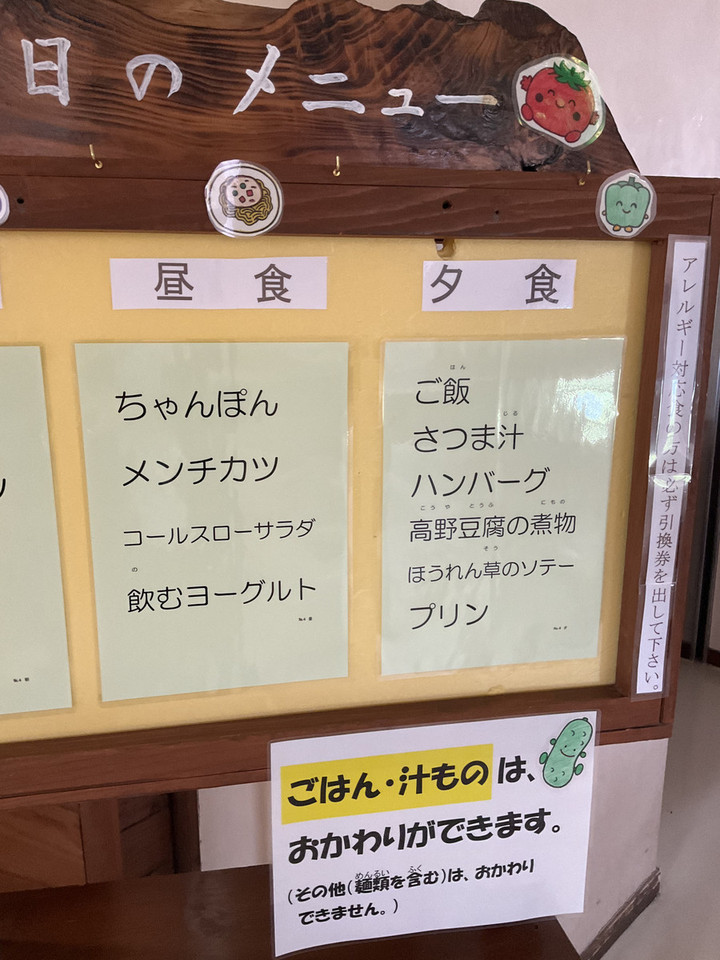 日のメニュー
昼食
ちゃんぽん
メンチカツ
コールスローサラダ
の
飲むヨーグルト
№4 昼
夕食
はん
ご飯
しる
さつま汁
ハンバーグ
こうや とうふ にもの
高野豆腐の煮物
そう
ほうれん草のソテー
プリン
№4 夕
№4 朝
アレルギー対応食の方は必ず引換券を出して下さい。
ごはん・汁ものは、
おかわりができます。
めんるい ふく
(その他(麺類を含む)は、おかわり
できません。)